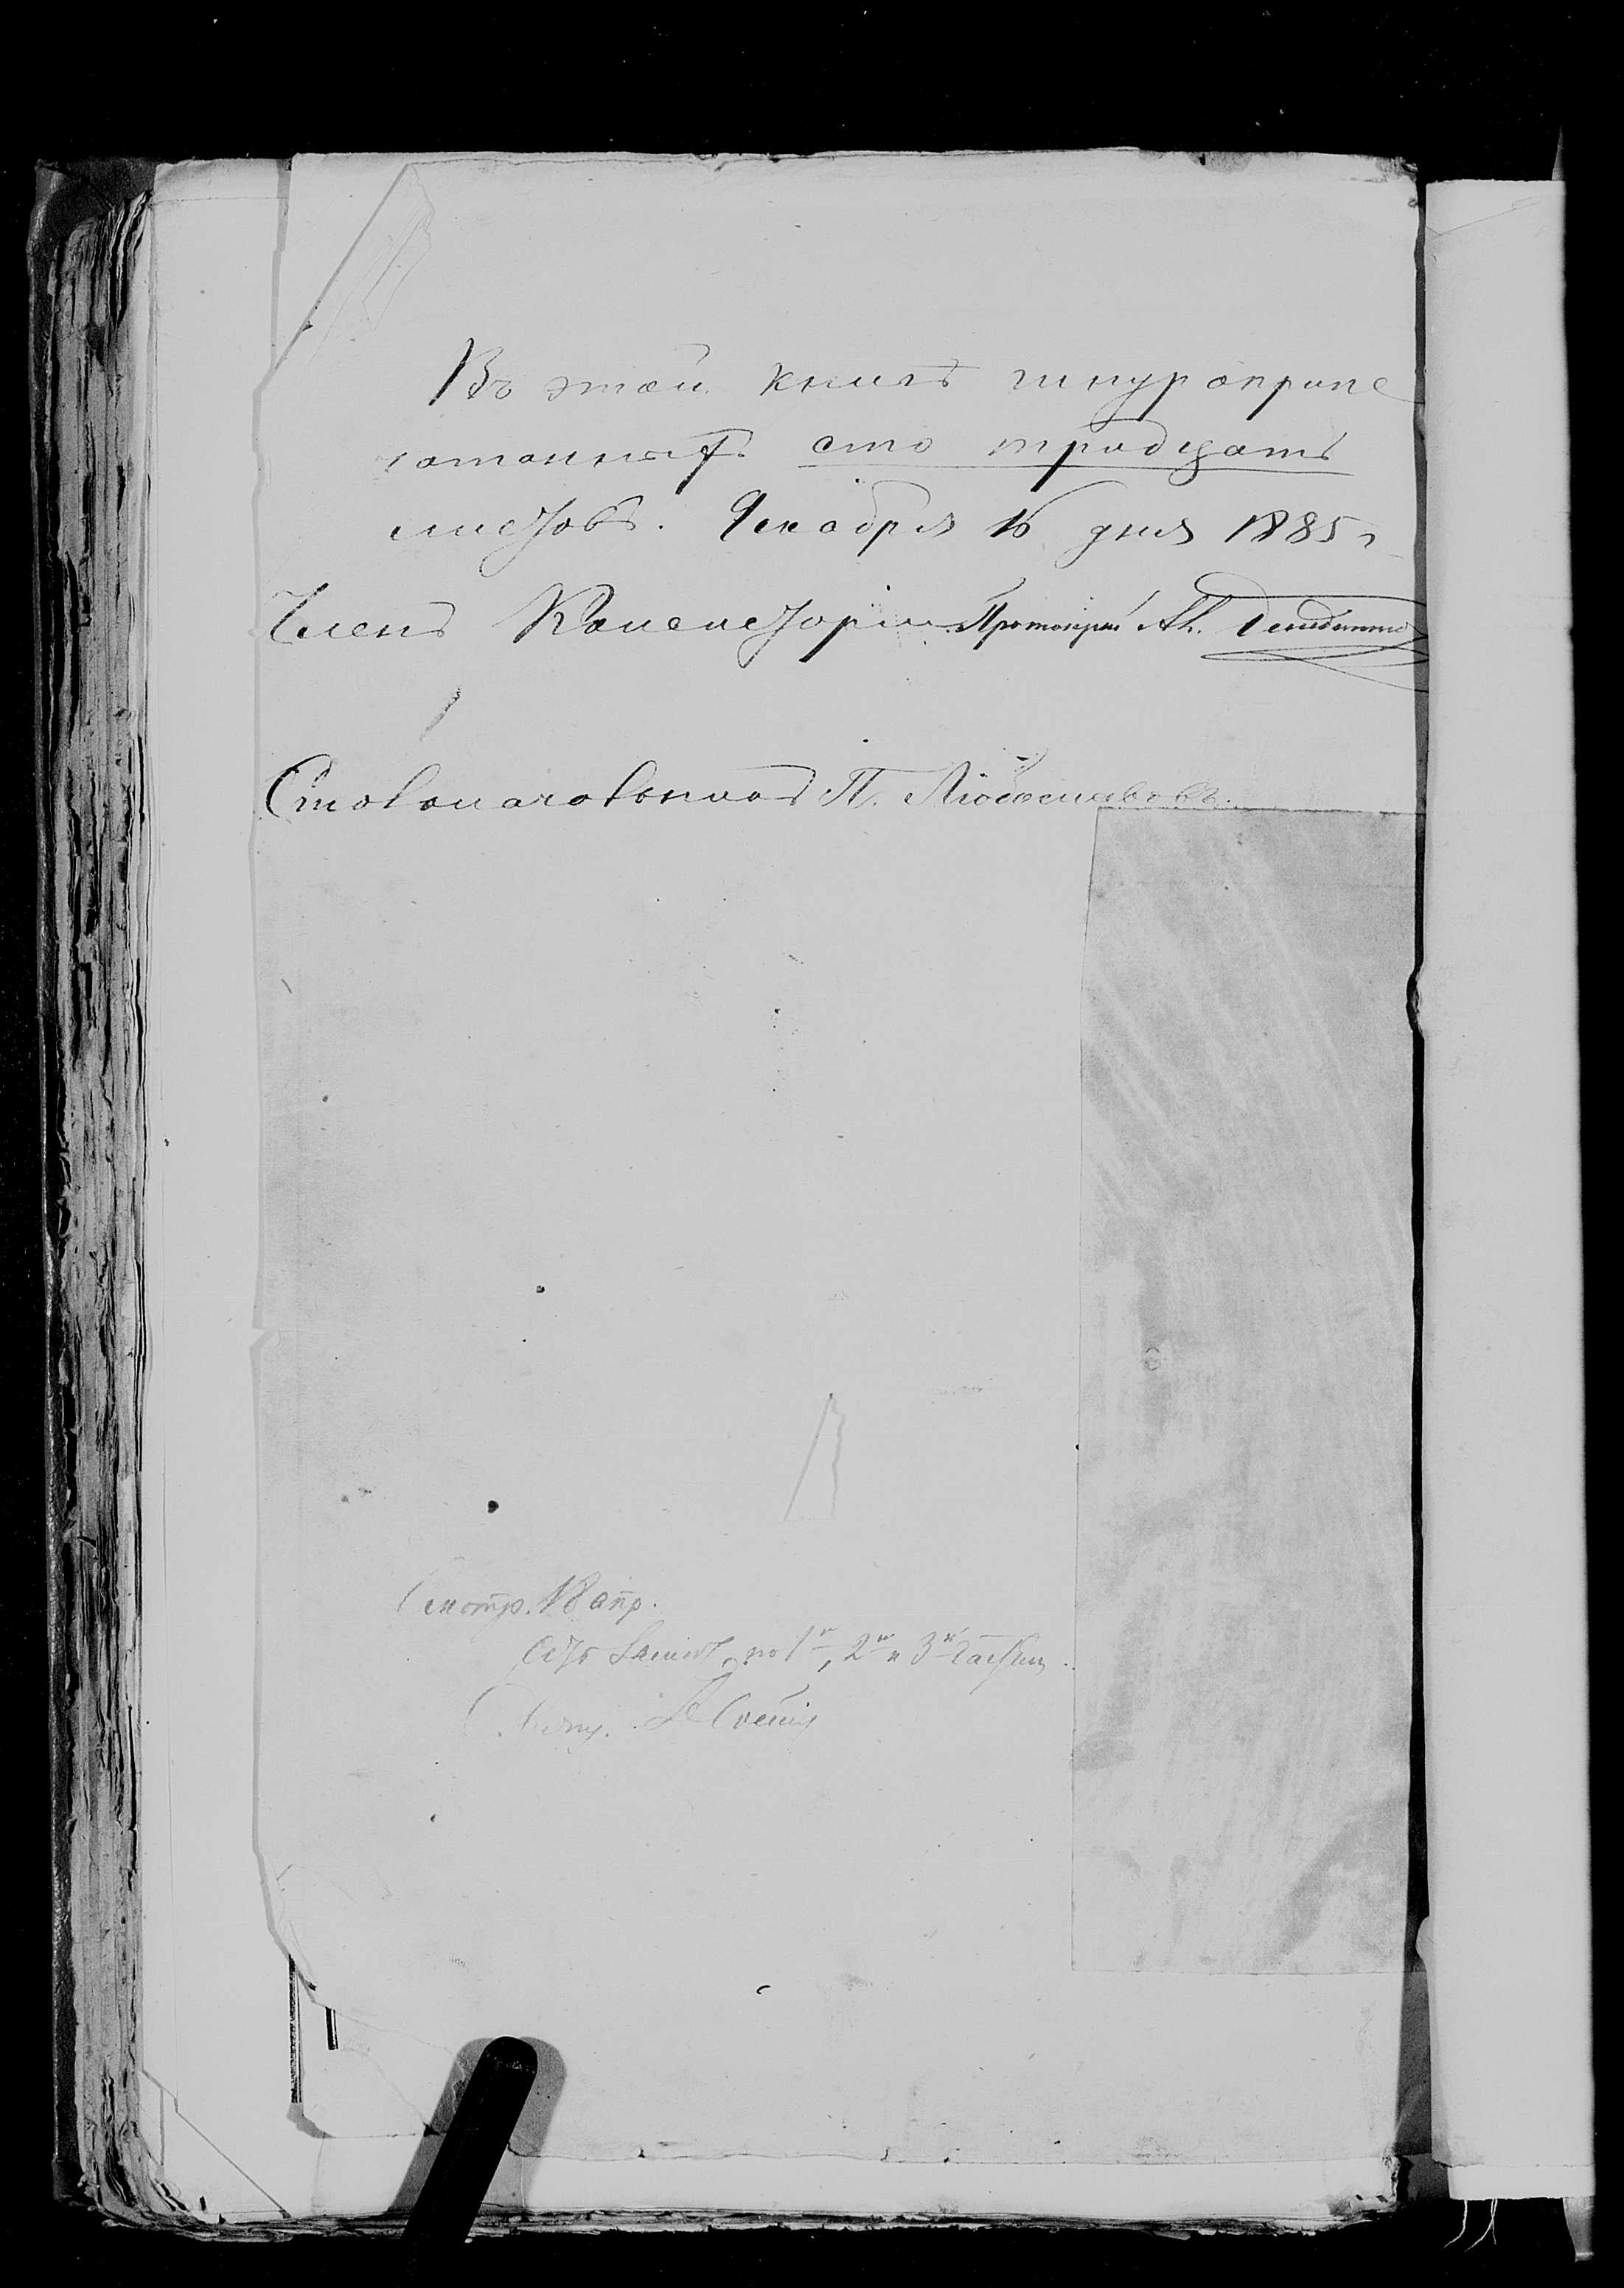 Въ этой книгѣ шнуроприпе
чатанныхъ сто тридцать
листовъ. Декабря 16 дня 1885 г
Членъ Консисторіи Протоіерей Ал.
Столоначальникъ П. Любославовъ.
Смотр. 18 апр.
по 1й, 2й и 3й части